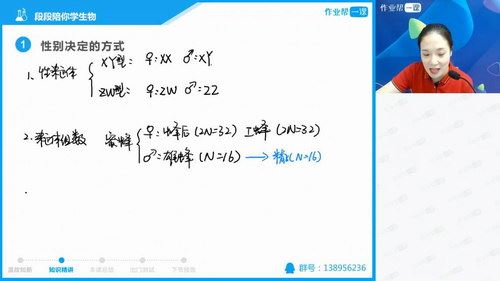 段段陪你学生物
作业帮一课
1 性别决定的方式
1、性染色体 XY型: ♀:XX ♂:XY
ZW型: ♀:ZW ♂:ZZ
2、染色体组数 蜜蜂 ♀:蜂后(2N=32) 工蜂(2N=32)
♂:雄蜂(N=16) → 精子(N=16)
温故知新 知识精讲 本课总结 出门测试 下节预告
群号:138956236
作业帮一课